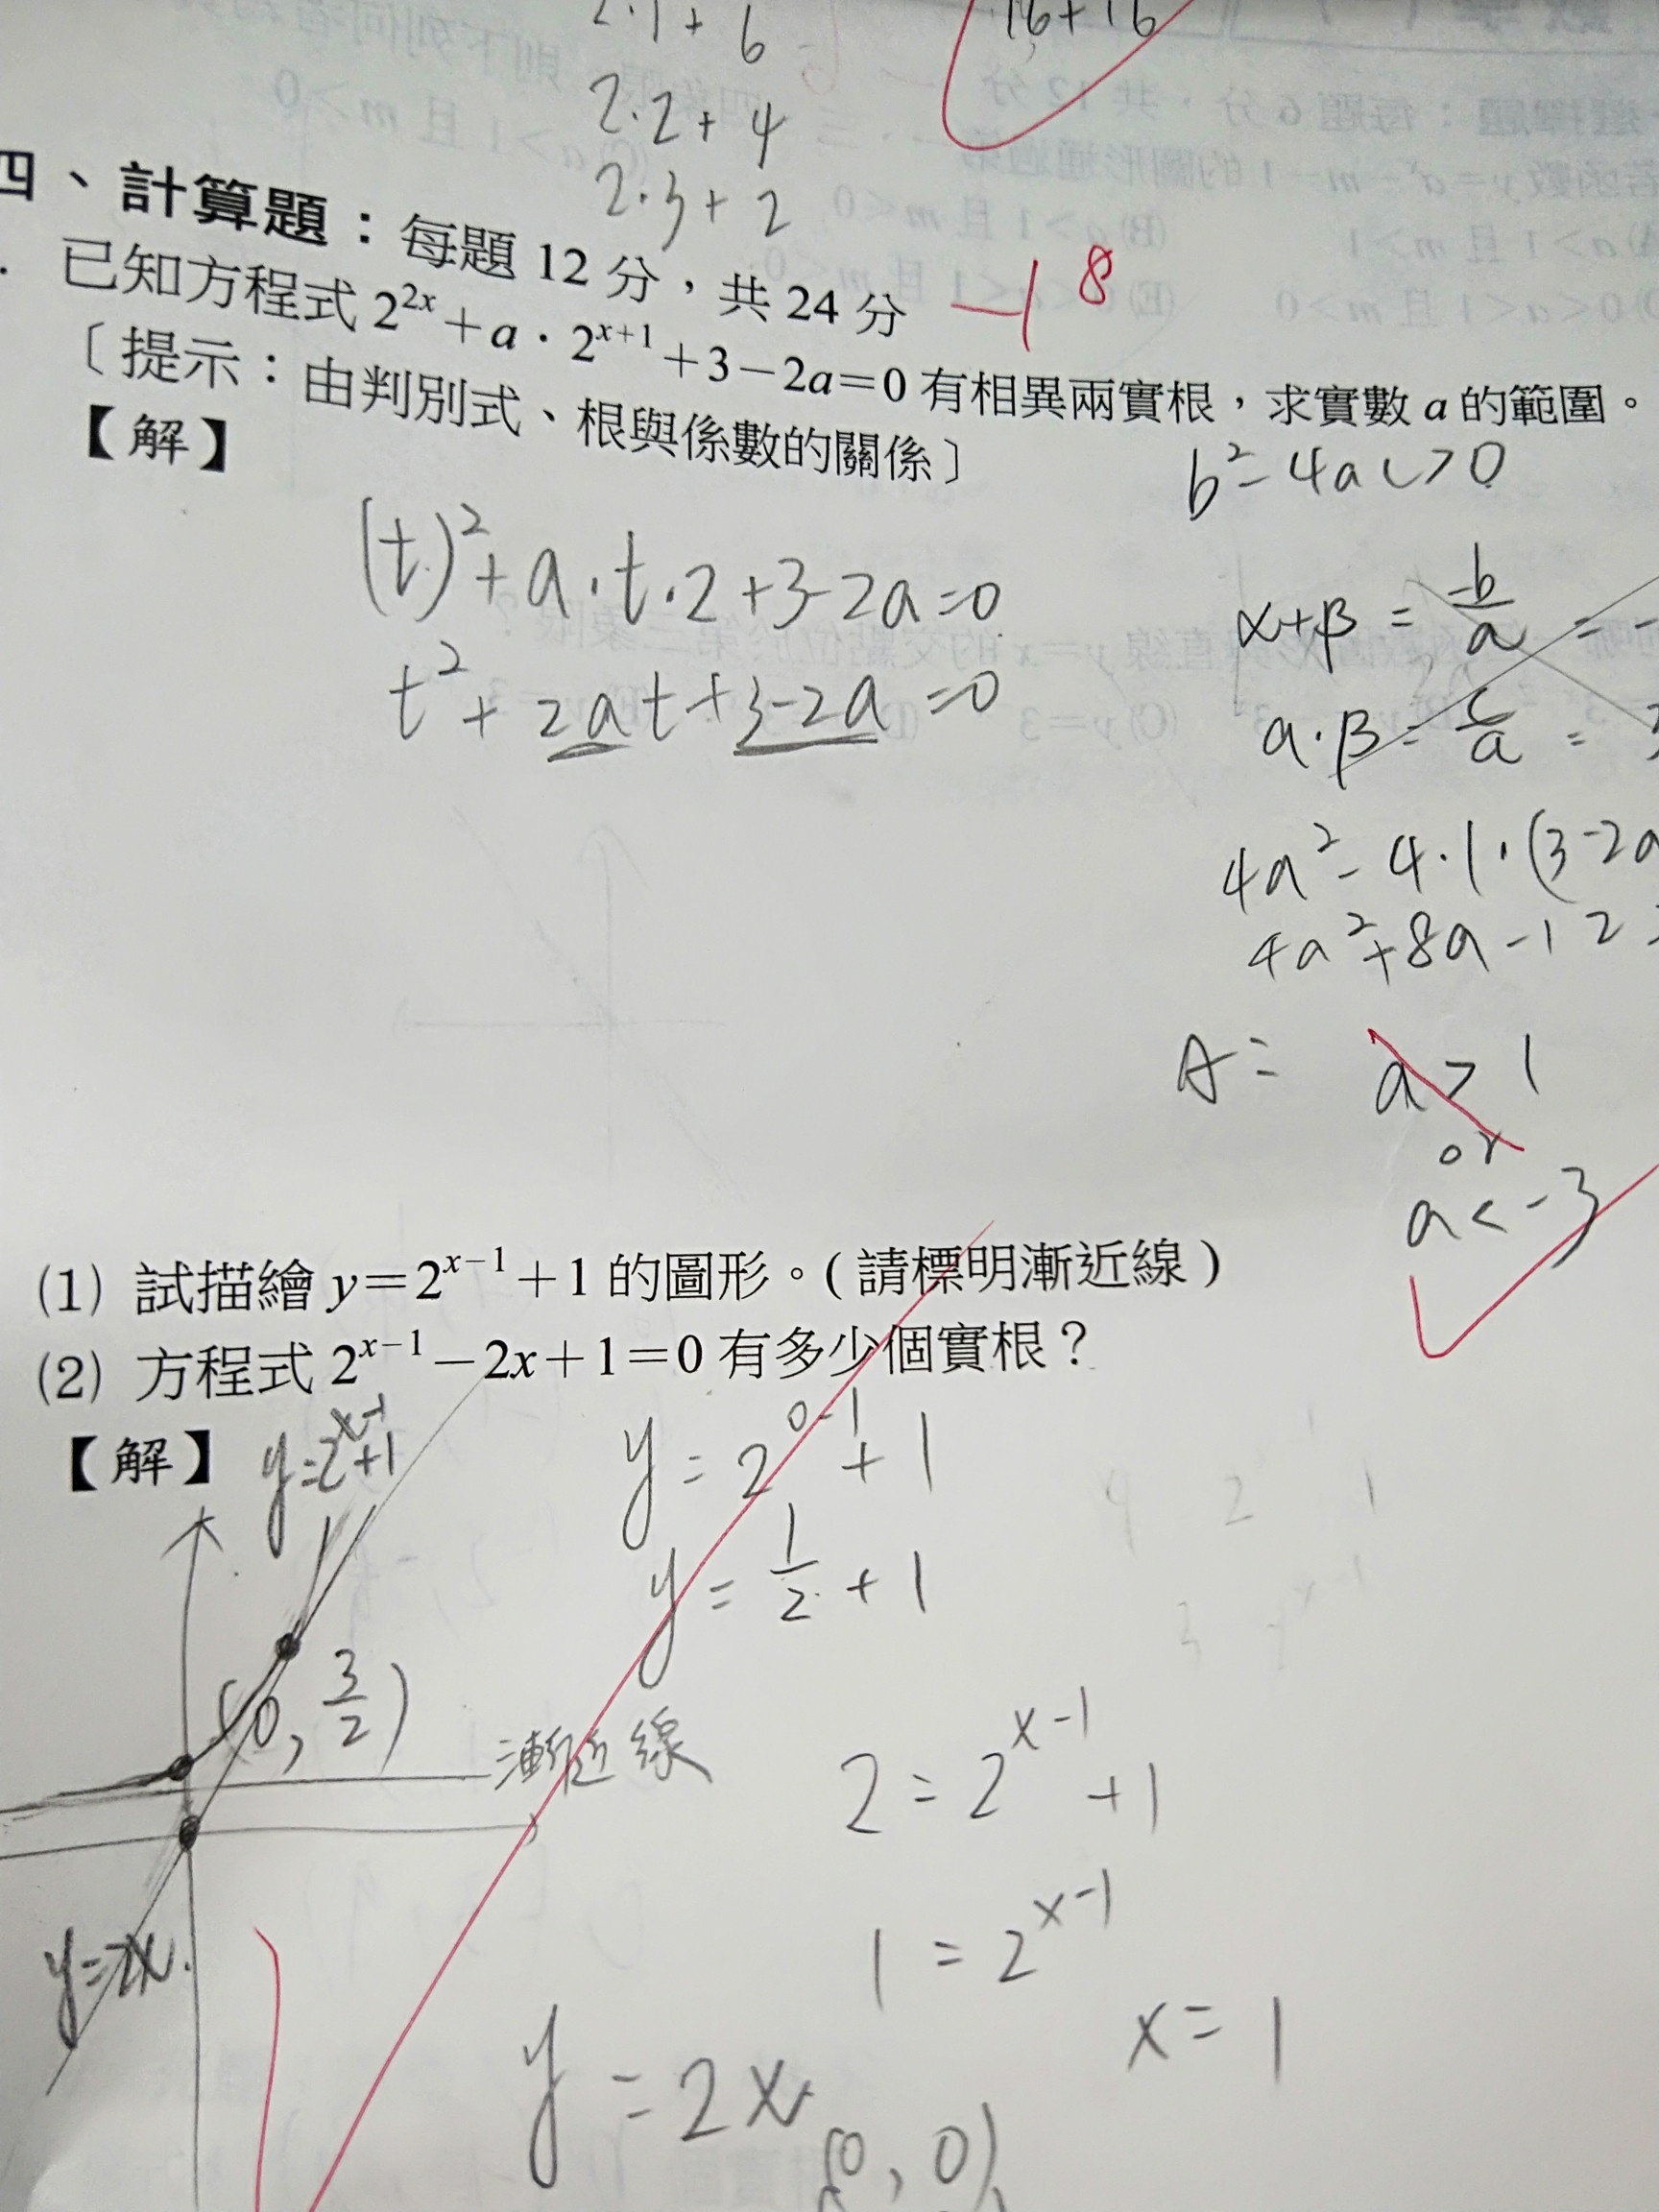 2·1+6
16+16
2·2+4
2·3+2
四、計算題：每題 12 分，共 24 分
-18
. 已知方程式 2^{2x}+a·2^{x+1}+3-2a=0 有相異兩實根，求實數 a 的範圍。
〔提示：由判別式、根與係數的關係〕
【解】
b²-4ac>0
(t)²+a·t·2+3-2a=0
α+β=-b/a=-
t²+2at+3-2a=0
a·β=c/a=
4a²-4·1·(3-2a
4a²+8a-12
A= a>1
or
a<-3
(1) 試描繪 y=2^{x-1}+1 的圖形。(請標明漸近線)
(2) 方程式 2^{x-1}-2x+1=0 有多少個實根？
【解】
y=2^{x-1}+1
y=2^{0-1}+1
y=1/2+1
(0, 3/2)
漸近線
2=2^{x-1}+1
1=2^{x-1}
y=2x
x=1
y=2x
(0,0)